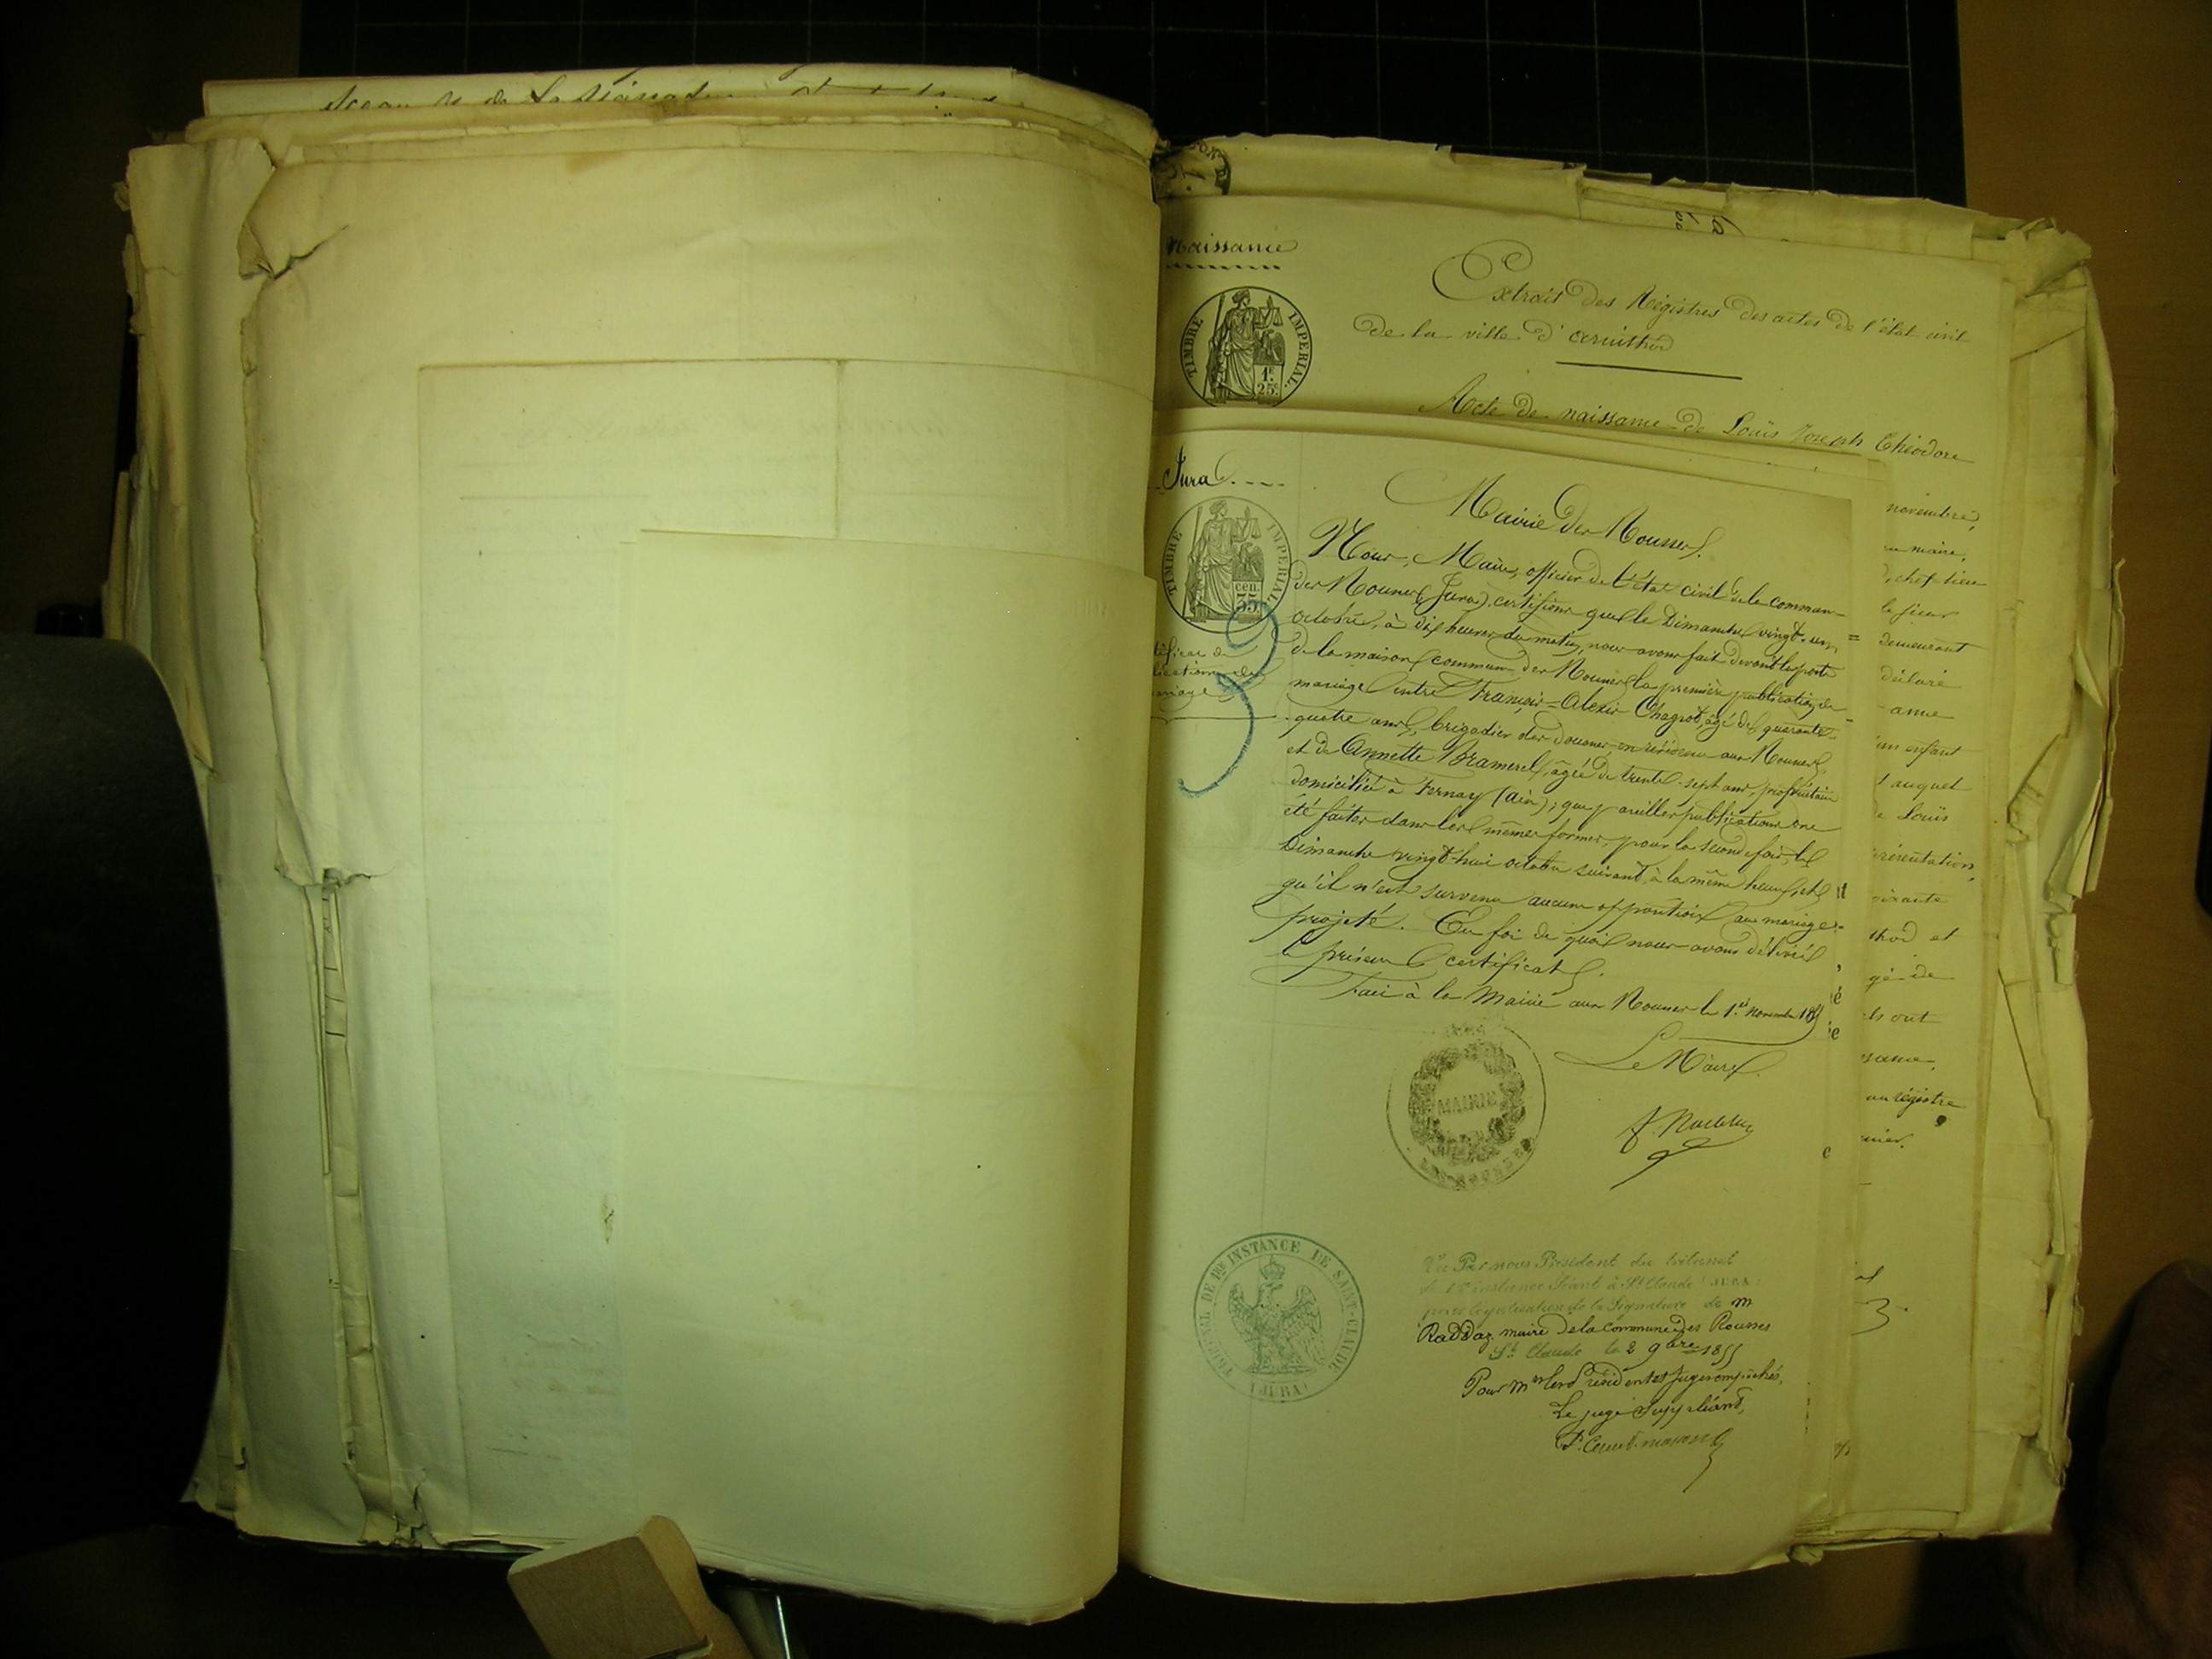 Naissance
Extrait des Régistres des actes de l'état civil
de la ville d'arinthod
TIMBRE IMPERIAL.
1F.
25C.
Acte de naissance de Louis Joseph Théodore
Jura
TIMBRE IMPERIAL
35
cen.
Mairie des Rousses.
Nous, Maire, officier de l'état civil de la commune
des Rousses (Jura), certifions que le Dimanche vingt-un
octobre, à dix heures du matin, nous avons fait devant la porte
de la maison commune des Rousses la première publication de
mariage entre François-Alexis Chagrot, âgé de quarante-
quatre ans, brigadier des douanes, en résidence aux Rousses,
et de Annette Bramerel, âgée de trente-sept ans, propriétaire
domiciliée à Fernay (ain); que pareilles publications ont
été faites dans les mêmes formes, pour la seconde fois, le
Dimanche vingt-huit octobre suivant, à la même heure, et
qu'il n'est survenu aucune opposition au mariage
projeté. En foi de quoi nous avons délivré
le présent certificat.
Fait à la Mairie aux Rousses le 1er novembre 1855
Le Maire
MAIRIE
novembre,
maire,
chef lieu
le sieur
demeurant
déclaré
anne
un enfant
auquel
de Louis
présentation,
thod et
de
ont
régistre
TRIBUNAL DE 1RE INSTANCE DE SAINT-CLAUDE
(JURA)
Vu Par nous Président du tribunal
de 1re instance Séant à St Claude (JURA)
pour légalisation de la Signature de m
Raddaz maire de la Commune des Rousses
St Claude le 2 9bre 1855
Pour Mrs les Présidents et Juges empêchés,
Le juge Suppléant,
3